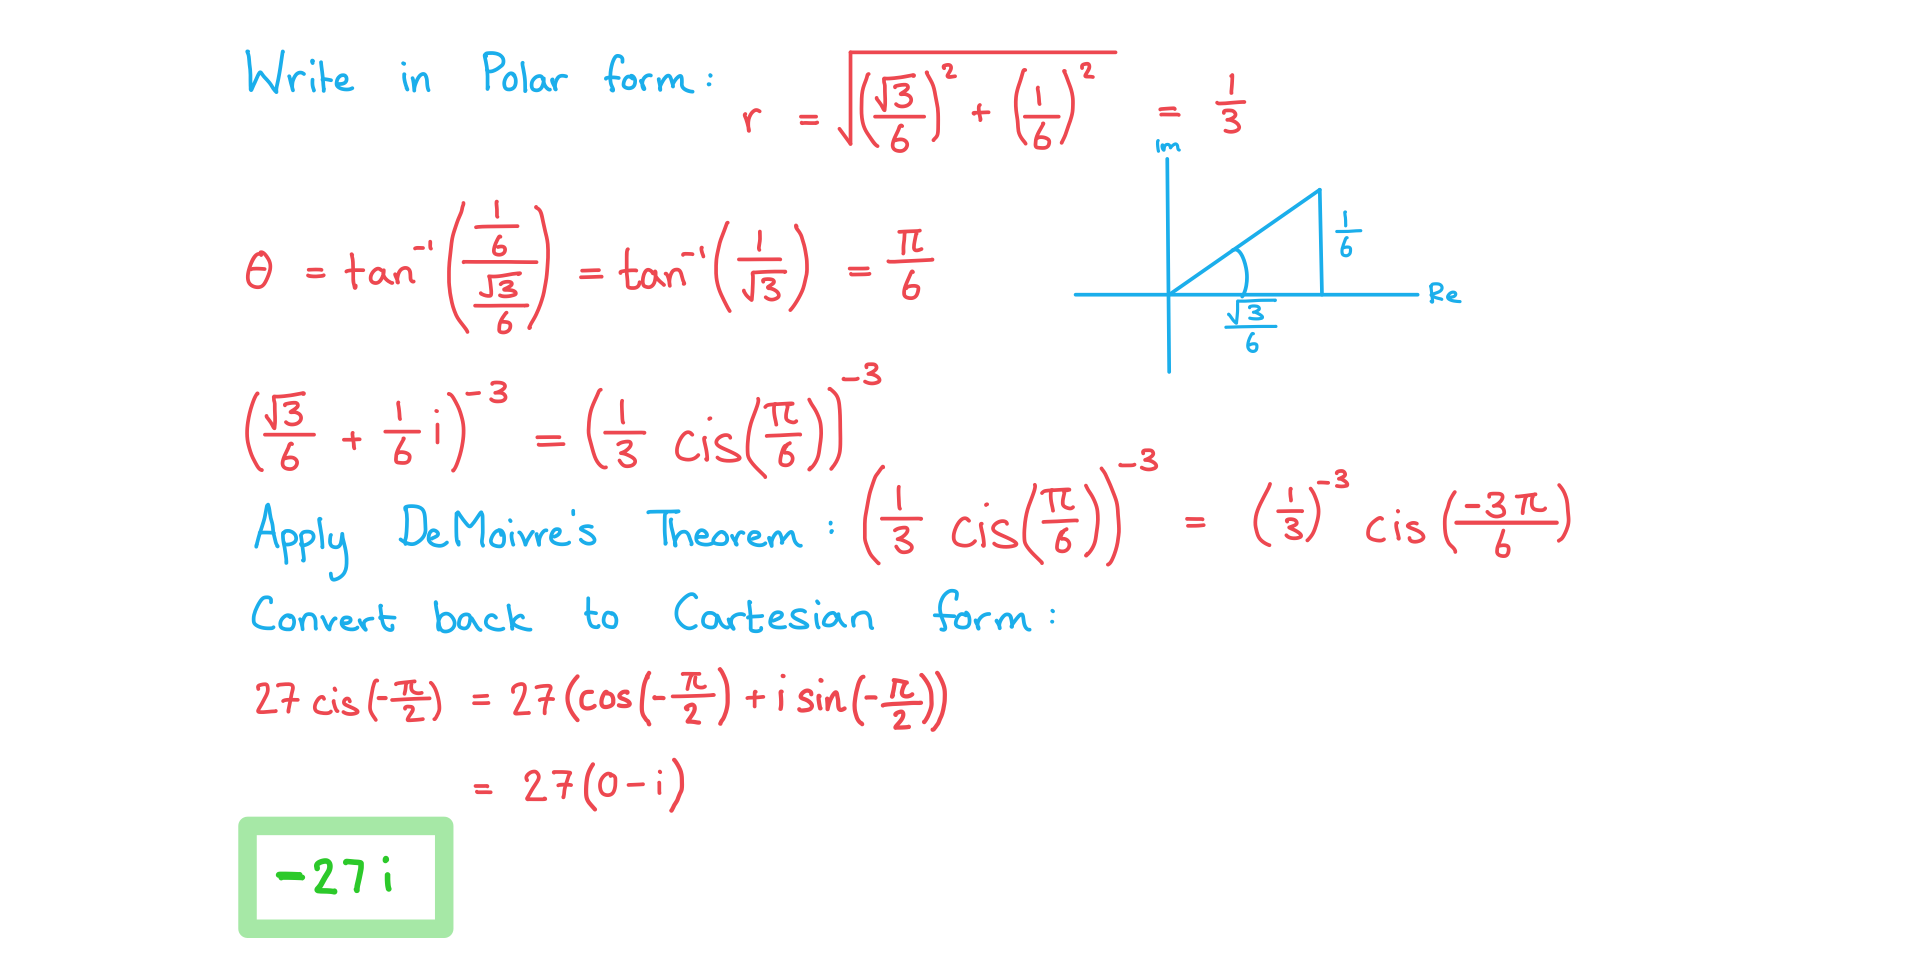 Write in Polar form: r = √((√3/6)² + (1/6)²) = 1/3
Im
θ = tan⁻¹((1/6)/(√3/6)) = tan⁻¹(1/√3) = π/6
1/6
Re
√3/6
(√3/6 + 1/6 i)⁻³ = (1/3 cis(π/6))⁻³
Apply DeMoivre's Theorem: (1/3 cis(π/6))⁻³ = (1/3)⁻³ cis(-3π/6)
Convert back to Cartesian form:
27 cis(-π/2) = 27(cos(-π/2) + i sin(-π/2))
= 27(0 - i)
-27 i